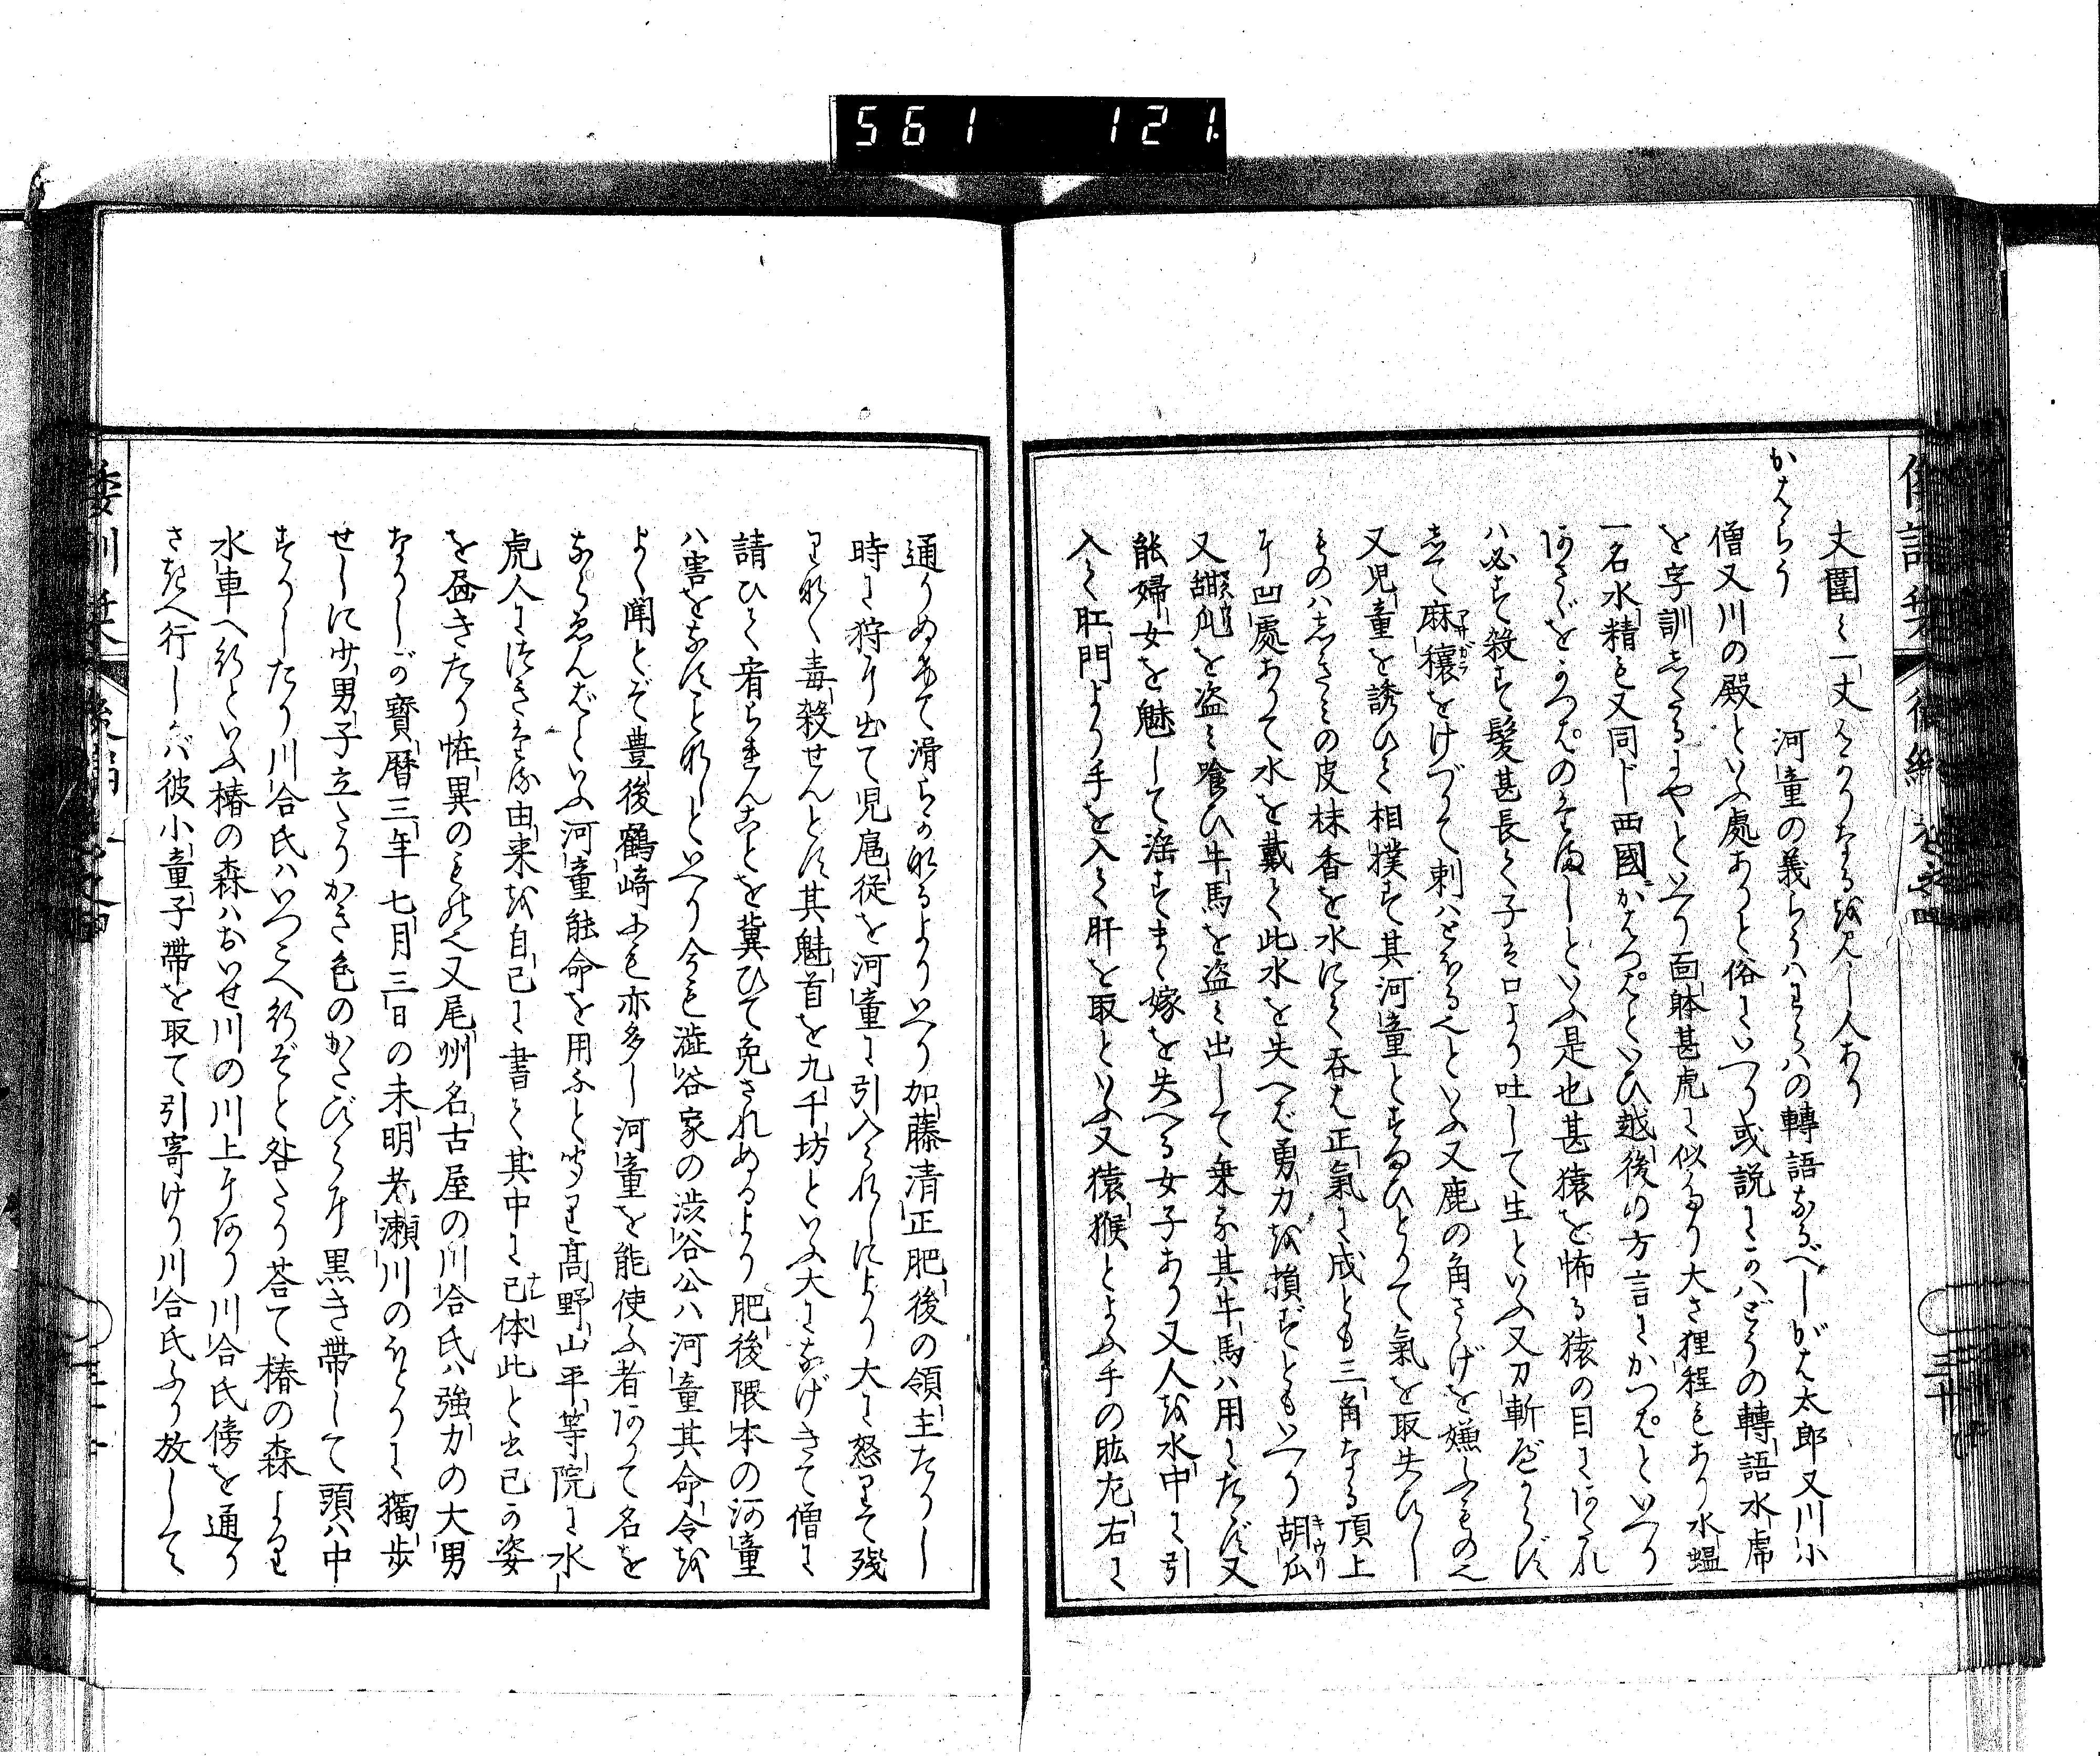 561 121
倭訓栞 後編 巻之四 三十
丈圍ミ一丈はかりなるを見し人あり
かはらう 河童の義らうハわらハの轉語なるべしがは太郎又川小
僧又川の殿といふ處ありと俗にいへり或説にかハどうの轉語水虎
を字訓したるにやといへり面躰甚虎に似たり大さ狸程もあり水蝹
一名水精も又同じ西國がはつぱといひ越後の方言にかつはといへり
川さるをかつはのをばしといふ是也甚猿を怖る猿の目にかかれ
ハ必ず殺す髪甚長く子は口より吐して生といふ又刀斬壁からず
して麻穰をけづりて刺ハとほるといふ又鹿の角さゝげを嫌ふもの也
又児童を誘ひて相撲す其河童とすまひとりて氣を取失ひし
ものハしきみの皮抹香を水にて呑は正氣に成とも三角なる頂上
に凹處ありて水を戴く此水を失へば勇力を損ずともいへり胡瓜
又甜瓜を盗み喰ひ牛馬を盗み出して乗る其牛馬ハ用にたゝず又
能婦女を魅して淫すまゝ嫁を失へる女子あり又人を水中に引
入て肛門より手を入て肝を取といふ又猿猴とよふ手の肱左右に
通りぬけて滑らかなるよりいへり加藤清正肥後の領主たりし
時に狩に出て児扈従を河童に引入られしにより大に怒りて殘
りなく毒殺せんとす其魁首を九千坊といふ大になげきて僧に
請ひて宥られんことを冀ひて免されぬるより肥後隈本の河童
ハ害をなすことなしといへり今も澁谷家の渋谷公ハ河童其命令を
よく聞とぞ豊後鶴崎にも亦多し河童を能使ふ者ありて名を
ならゑんばといふ河童能命を用ふと此より高野山平等院に水
虎人につきたる由來を自己に書く其中に己体此と出己の姿
を畫きたり恠異のものと又尾州名古屋の川合氏ハ強力の大男
なりしが寳暦三年七月三日の未明老瀬川のほとりに獨歩
せしに少男子立たりかき色のかたびらに黒き帶して頭ハ中
そりしたり川合氏ハいつこへ行ぞと咎たり荅て椿の森より
水車へ行といふ椿の森ハおいせ川の川上にあり川合氏傍を通り
さきへ行しがバ彼小童子帶を取て引寄けり川合氏ふり放して
倭訓栞 後編 巻之四 三十一